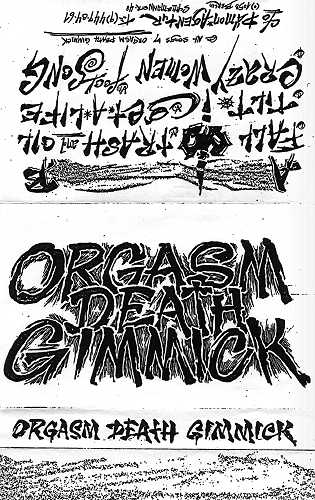 FALL TRASH OIL
TILT GET A LIFE
CRAZY WOMEN SONG
ALL SONGS BY ORGASM DEATH GIMMICK
ORGASM
DEATH
GIMMICK
ORGASM DEATH GIMMICK